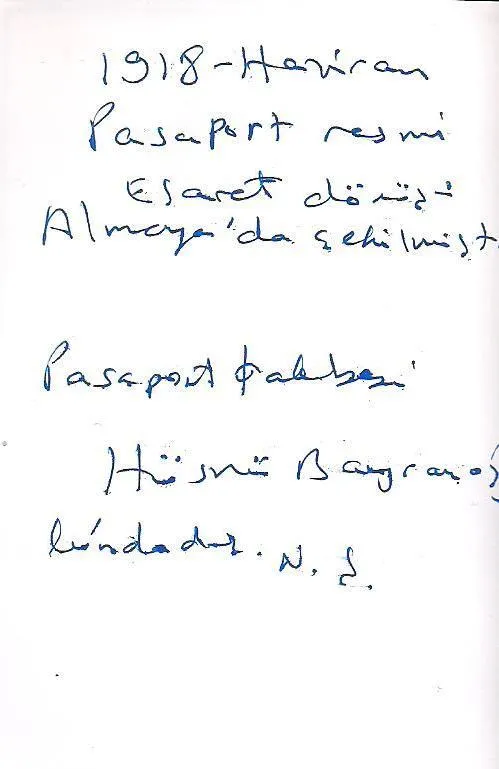 1918-Haziran
Pasaport resmi
Esaret dönüşü
Almaya'da çekilmişt
Pasaport
Hüsnü Bayramoğ
lundadır. N. Ş.